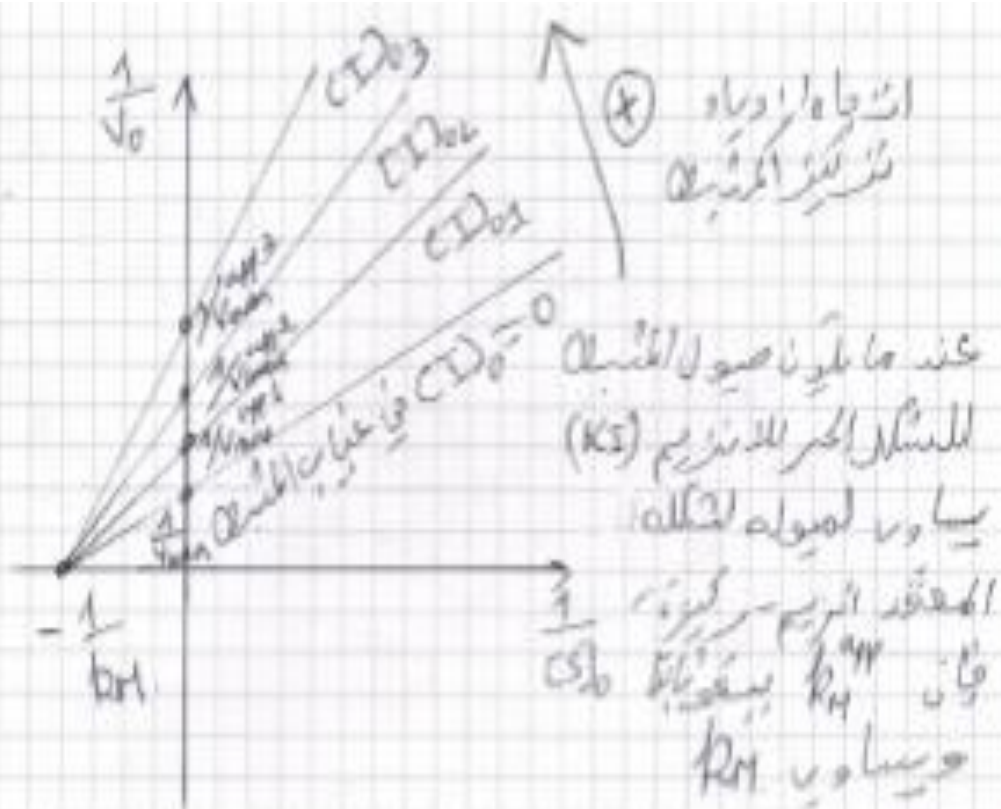 1/V₀
[I]₀₃
[I]₀₂
[I]₀₁
[I]₀ = 0
في غياب المثبط
1/Vmax
-1/kM
1/[S]₀
(+) اتجاه ازدياد
تركيز المثبط
عندما يكون ميول المثبط
للشكل الحر للانزيم (KI)
يساوي لميوله لشكله
المعقد انزيم-ركيزة
فإن kMᵃᵖᵖ يبقى ثابتا
ويساوي kM